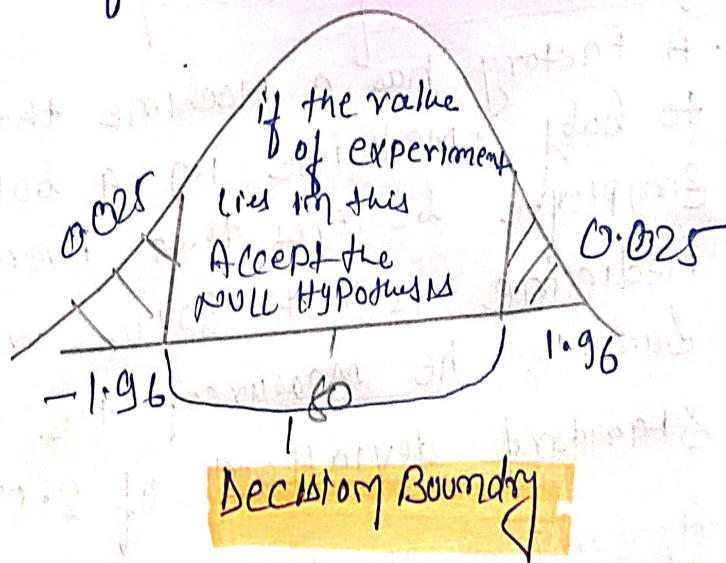 if the value
of experiment
lies in this
Accept the
NULL Hypothesis
0.025
0.025
-1.96
80
1.96
Decision Boundry